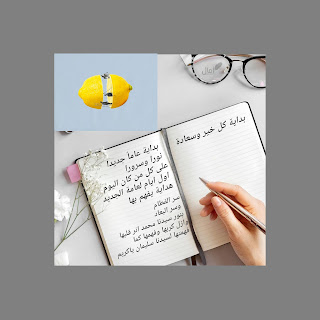 بداية كل خير وسعادة
بداية عاما جديدا
نورا وسرورا
على كل من كان اليوم
اول ايام لعامة الجديد
هداية يفهم بها
سر الفطام
وسر البعاد
بنور سيدنا محمد انر قلبها
وأزل كربها وفهمها كما
فهمتها لسيدنا سليمان ياكريم